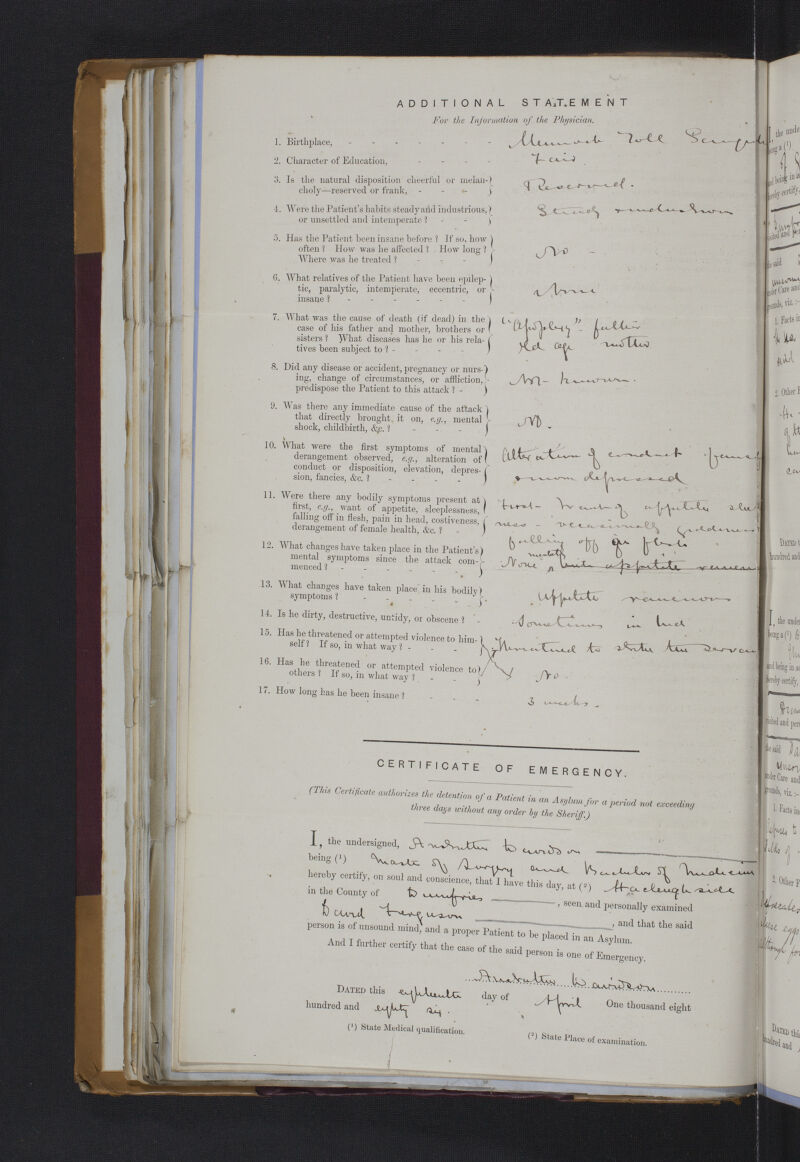 ADDITIONAL STATEMENT
For the Information of the Physician.
1. Birthplace, - - - - - - - Toll
2. Character of Education, - - - - Fair
3. Is the natural disposition cheerful or melan-
choly—reserved or frank, - - - Reserved.
4. Were the Patient's habits steady and industrious,
or unsettled and intemperate ? - - Steady & industrious
5. Has the Patient been insane before ? If so, how
often ? How was he affected ? How long ?
Where was he treated ? - - - No -
6. What relatives of the Patient have been epilep-
tic, paralytic, intemperate, eccentric, or
insane ? - - - - - - None
7. What was the cause of death (if dead) in the
case of his father and mother, brothers or
sisters ? What diseases has he or his rela-
tives been subject to ? - - - - -
"Apoplexy" - father
old age mother
8. Did any disease or accident, pregnancy or nurs-
ing, change of circumstances, or affliction,
predispose the Patient to this attack ? - Not known.
9. Was there any immediate cause of the attack
that directly brought it on, e.g., mental
shock, childbirth, &c. ? - - - No.
10. What were the first symptoms of mental
derangement observed, e.g., alteration of
conduct or disposition, elevation, depres-
sion, fancies, &c. ? - - - -
Alteration of conduct
depressed
11. Were there any bodily symptoms present at
first, e.g., want of appetite, sleeplessness,
falling off in flesh, pain in head, costiveness,
derangement of female health, &c. ? -
want of appetite
ness - occasionally giddiness
falling off in flesh
12. What changes have taken place in the Patient's
mental symptoms since the attack com-
menced ? - - - - - - None appetite
13. What changes have taken place in his bodily
symptoms ? - - - - - - Appetite ravenous
14. Is he dirty, destructive, untidy, or obscene ? - Sometimes in bed
15. Has he threatened or attempted violence to him-
self ? If so, in what way ? - - - threatened to strike the
16. Has he threatened or attempted violence to
others ? If so, in what way ? - - No.
17. How long has he been insane ? - - - 3 weeks.
CERTIFICATE OF EMERGENCY.
(This Certificate authorizes the detention of a Patient in an Asylum for a period not exceeding
three days without any order by the Sheriff.)
I, the undersigned, Davidson
being (¹) Master of Surgery and Bachelor of Medicine
hereby certify, on soul and conscience, that I have this day, at (²)
in the County of Dumfries, seen and personally examined
David Ferguson, and that the said
person is of unsound mind, and a proper Patient to be placed in an Asylum.
And I further certify that the case of the said person is one of Emergency.
Davidson
DATED this eighteenth day of April One thousand eight
hundred and eighty six.
(¹) State Medical qualification.
(²) State Place of examination.